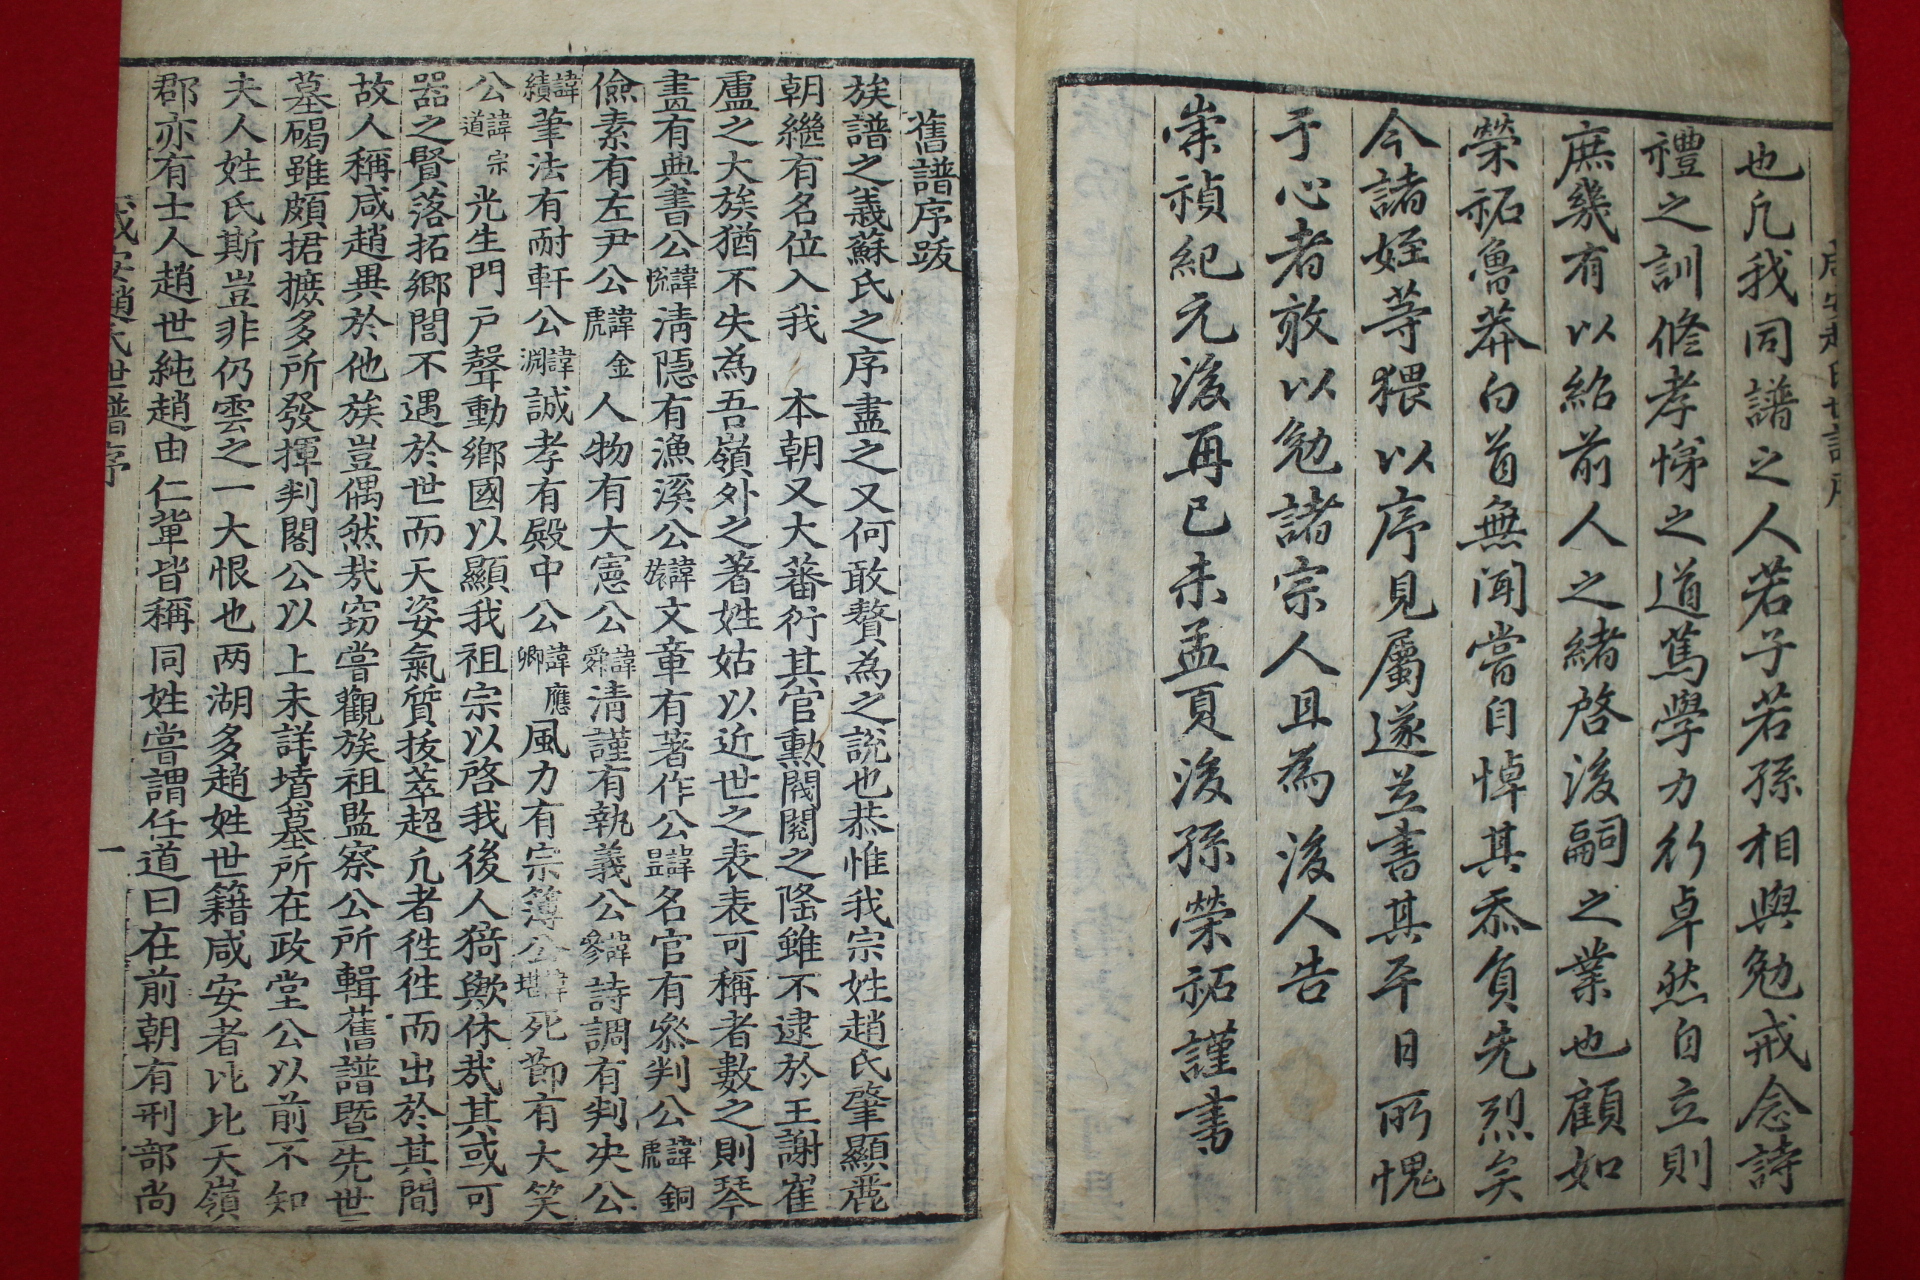 也凡我同譜之人若子若孫相與勉戒念詩
禮之訓修孝悌之道篤學力行卓然自立則
庶幾有以紹前人之緒啓後嗣之業也顧如
榮祏魯莽白首無聞嘗自悼其忝負先烈矣
今諸姪等猥以序見屬遂並書其平日所愧
于心者敢以勉諸宗人且為後人告
崇禎紀元後再己未孟夏後孫榮祏謹書
舊譜序跋
族譜之義蘇氏之序盡之又何敢贅為之說也恭惟我宗姓趙氏肇顯麗
朝繼有名位入我 本朝又大蕃衍其官勳閥閱之隆雖不逮於王謝崔
盧之大族猶不失為吾嶺外之著姓姑以近世之表表可稱者數之則琴
畫有典書公諱悅清隱有漁溪公諱旅文章有著作公諱昱名官有參判公諱銅虎
儉素有左尹公諱金虎人物有大憲公諱舜清謹有執義公諱參詩調有判決公
諱績筆法有耐軒公諱淵誠孝有殿中公諱應卿風力有宗簿公諱堪死節有大笑
公諱宗道光生門戶聲動鄉國以顯我祖宗以啓我後人猗歟休哉其或可
器之賢落拓鄉閭不遇於世而天姿氣質拔萃超凡者徃徃而出於其間
故人稱咸趙異於他族豈偶然哉窃嘗觀族祖監察公所輯舊譜曁先世
墓碣雖頗捃摭多所發揮判閣公以上未詳墳墓所在政堂公以前不知
夫人姓氏斯豈非仍雲之一大恨也两湖多趙姓世籍咸安者比比天嶺
郡亦有士人趙世純趙由仁輩皆稱同姓嘗謂任道曰在前朝有刑部尚
咸安趙氏世譜序 一